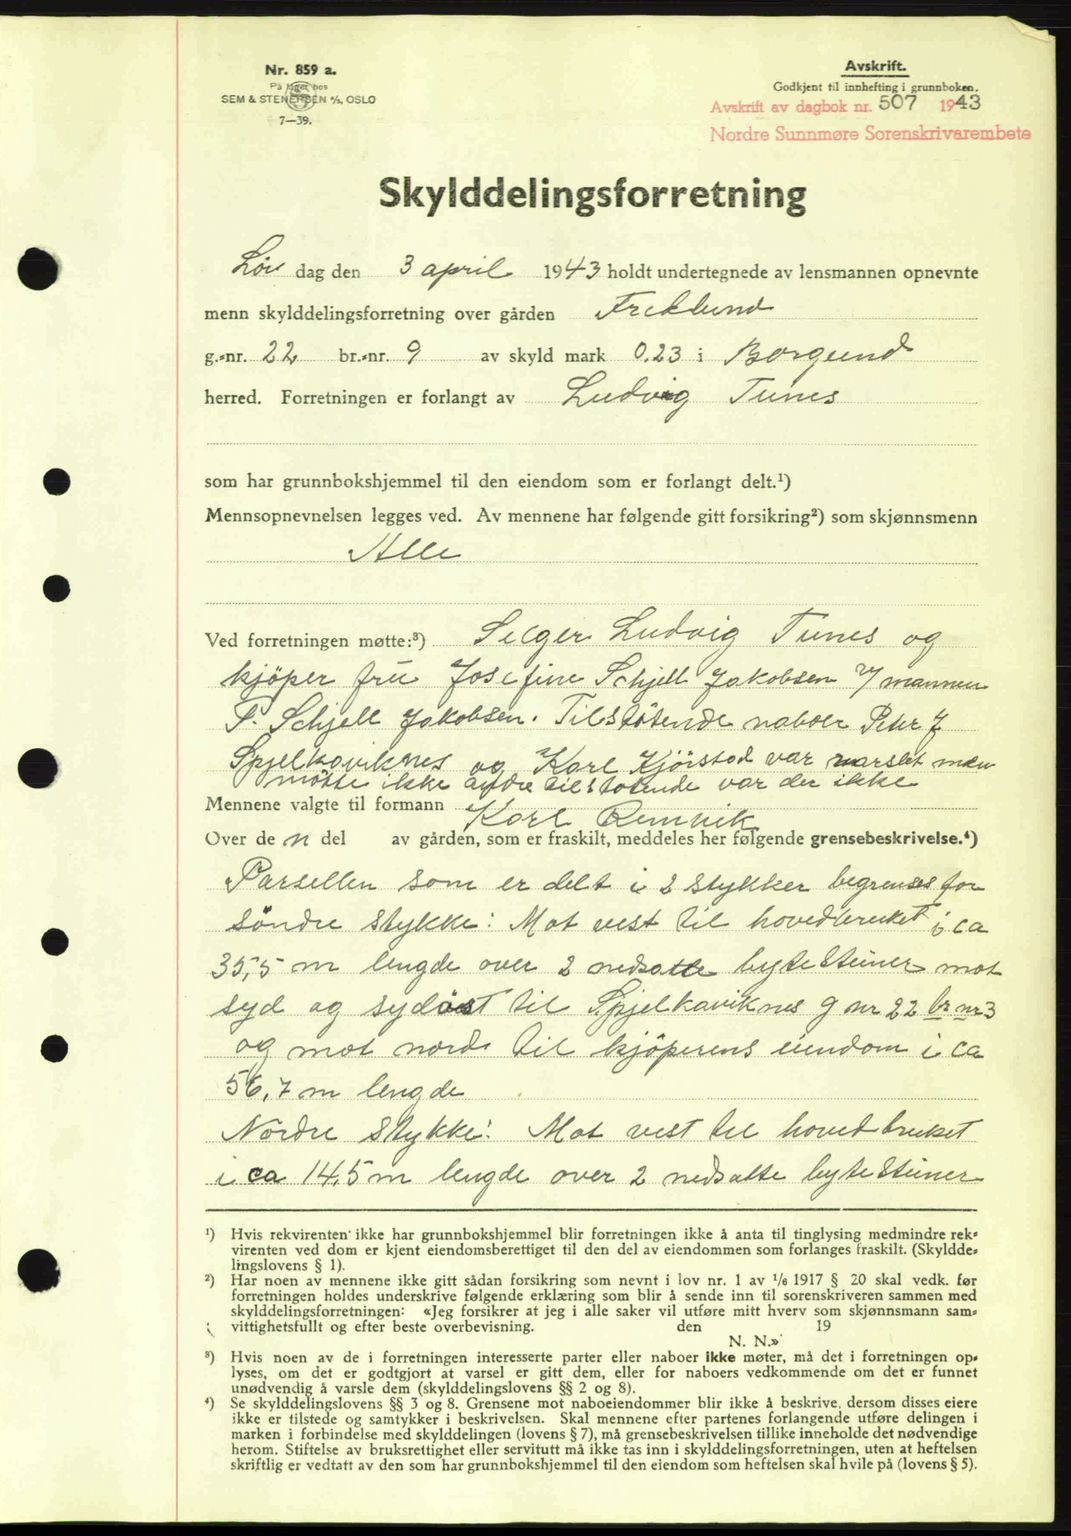 Nr. 859 a.
På lager hos
SEM & STENERSEN A/S, OSLO
7—39.
Avskrift.
Godkjent til innhefting i grunnboken.
Avskrift av dagbok nr. 507 1943
Nordre Sunnmøre Sorenskrivarembete
Skylddelingsforretning
Lør dag den 3 april 1943 holdt undertegnede av lensmannen opnevnte
menn skylddelingsforretning over gården Freklund
g.-nr. 22 br.-nr. 9 av skyld mark 0.23 i Borgund
herred. Forretningen er forlangt av Ludvig Tunes
som har grunnbokshjemmel til den eiendom som er forlangt delt.¹)
Mennsopnevnelsen legges ved. Av mennene har følgende gitt forsikring²) som skjønnsmenn
Alle
Ved forretningen møtte:³) Selger Ludvig Tunes og
kjöper fru Josefine Schjell Jakobsen v/ mannen
P. Schjell Jakobsen. Tilstötende naboer Petr J
Spjelkaviknes og Karl Kjörstad var varslet men
mötte ikke andre tilstötende var der ikke
Mennene valgte til formann Karl Remvik
Over de n del av gården, som er fraskilt, meddeles her følgende grensebeskrivelse.⁴)
Parsellen som er delt i 2 stykker begrenses for
söndre stykke: Mot vest til hovedbruket i ca
35,5 m lengde over 2 nedsatte bytesteiner mot
syd og sydöst til Spjelkaviknes g nr 22 br nr 3
og mot nord til kjöperens eiendom i ca
56,7 m lengde
Nordre stykke: Mot vest til hovedbruket
i ca 14,5 m lengde over 2 nedsatte bytesteiner
¹) Hvis rekvirenten ikke har grunnbokshjemmel blir forretningen ikke å anta til tinglysing medmindre rek-
virenten ved dom er kjent eiendomsberettiget til den del av eiendommen som forlanges fraskilt. (Skyldde-
lingslovens § 1).
²) Har noen av mennene ikke gitt sådan forsikring som nevnt i lov nr. 1 av 1/6 1917 § 20 skal vedk. før
forretningen holdes underskrive følgende erklæring som blir å sende inn til sorenskriveren sammen med
skylddelingsforretningen: «Jeg forsikrer at jeg i alle saker vil utføre mitt hverv som skjønnsmann sam-
vittighetsfullt og efter beste overbevisning. den 19
N. N.»
³) Hvis noen av de i forretningen interesserte parter eller naboer ikke møter, må det i forretningen op-
lyses, om det er godtgjort at varsel er gitt dem, eller for naboers vedkommende om det er funnet
unødvendig å varsle dem (skylddelingslovens §§ 2 og 8).
⁴) Se skylddelingslovens §§ 3 og 8. Grensene mot naboeiendommer blir ikke å beskrive, dersom disses eiere
ikke er tilstede og samtykker i beskrivelsen. Skal mennene efter partenes forlangende utføre delingen i
marken i forbindelse med skylddelingen (lovens § 7), må grensebeskrivelsen tillike inneholde det nødvendige
herom. Stiftelse av bruksrettighet eller servitutt må ikke tas inn i skylddelingsforretningen, uten at heftelsen
skriftlig er vedtatt av den som har grunnbokshjemmel til den eiendom som heftelsen skal hvile på (lovens § 5).